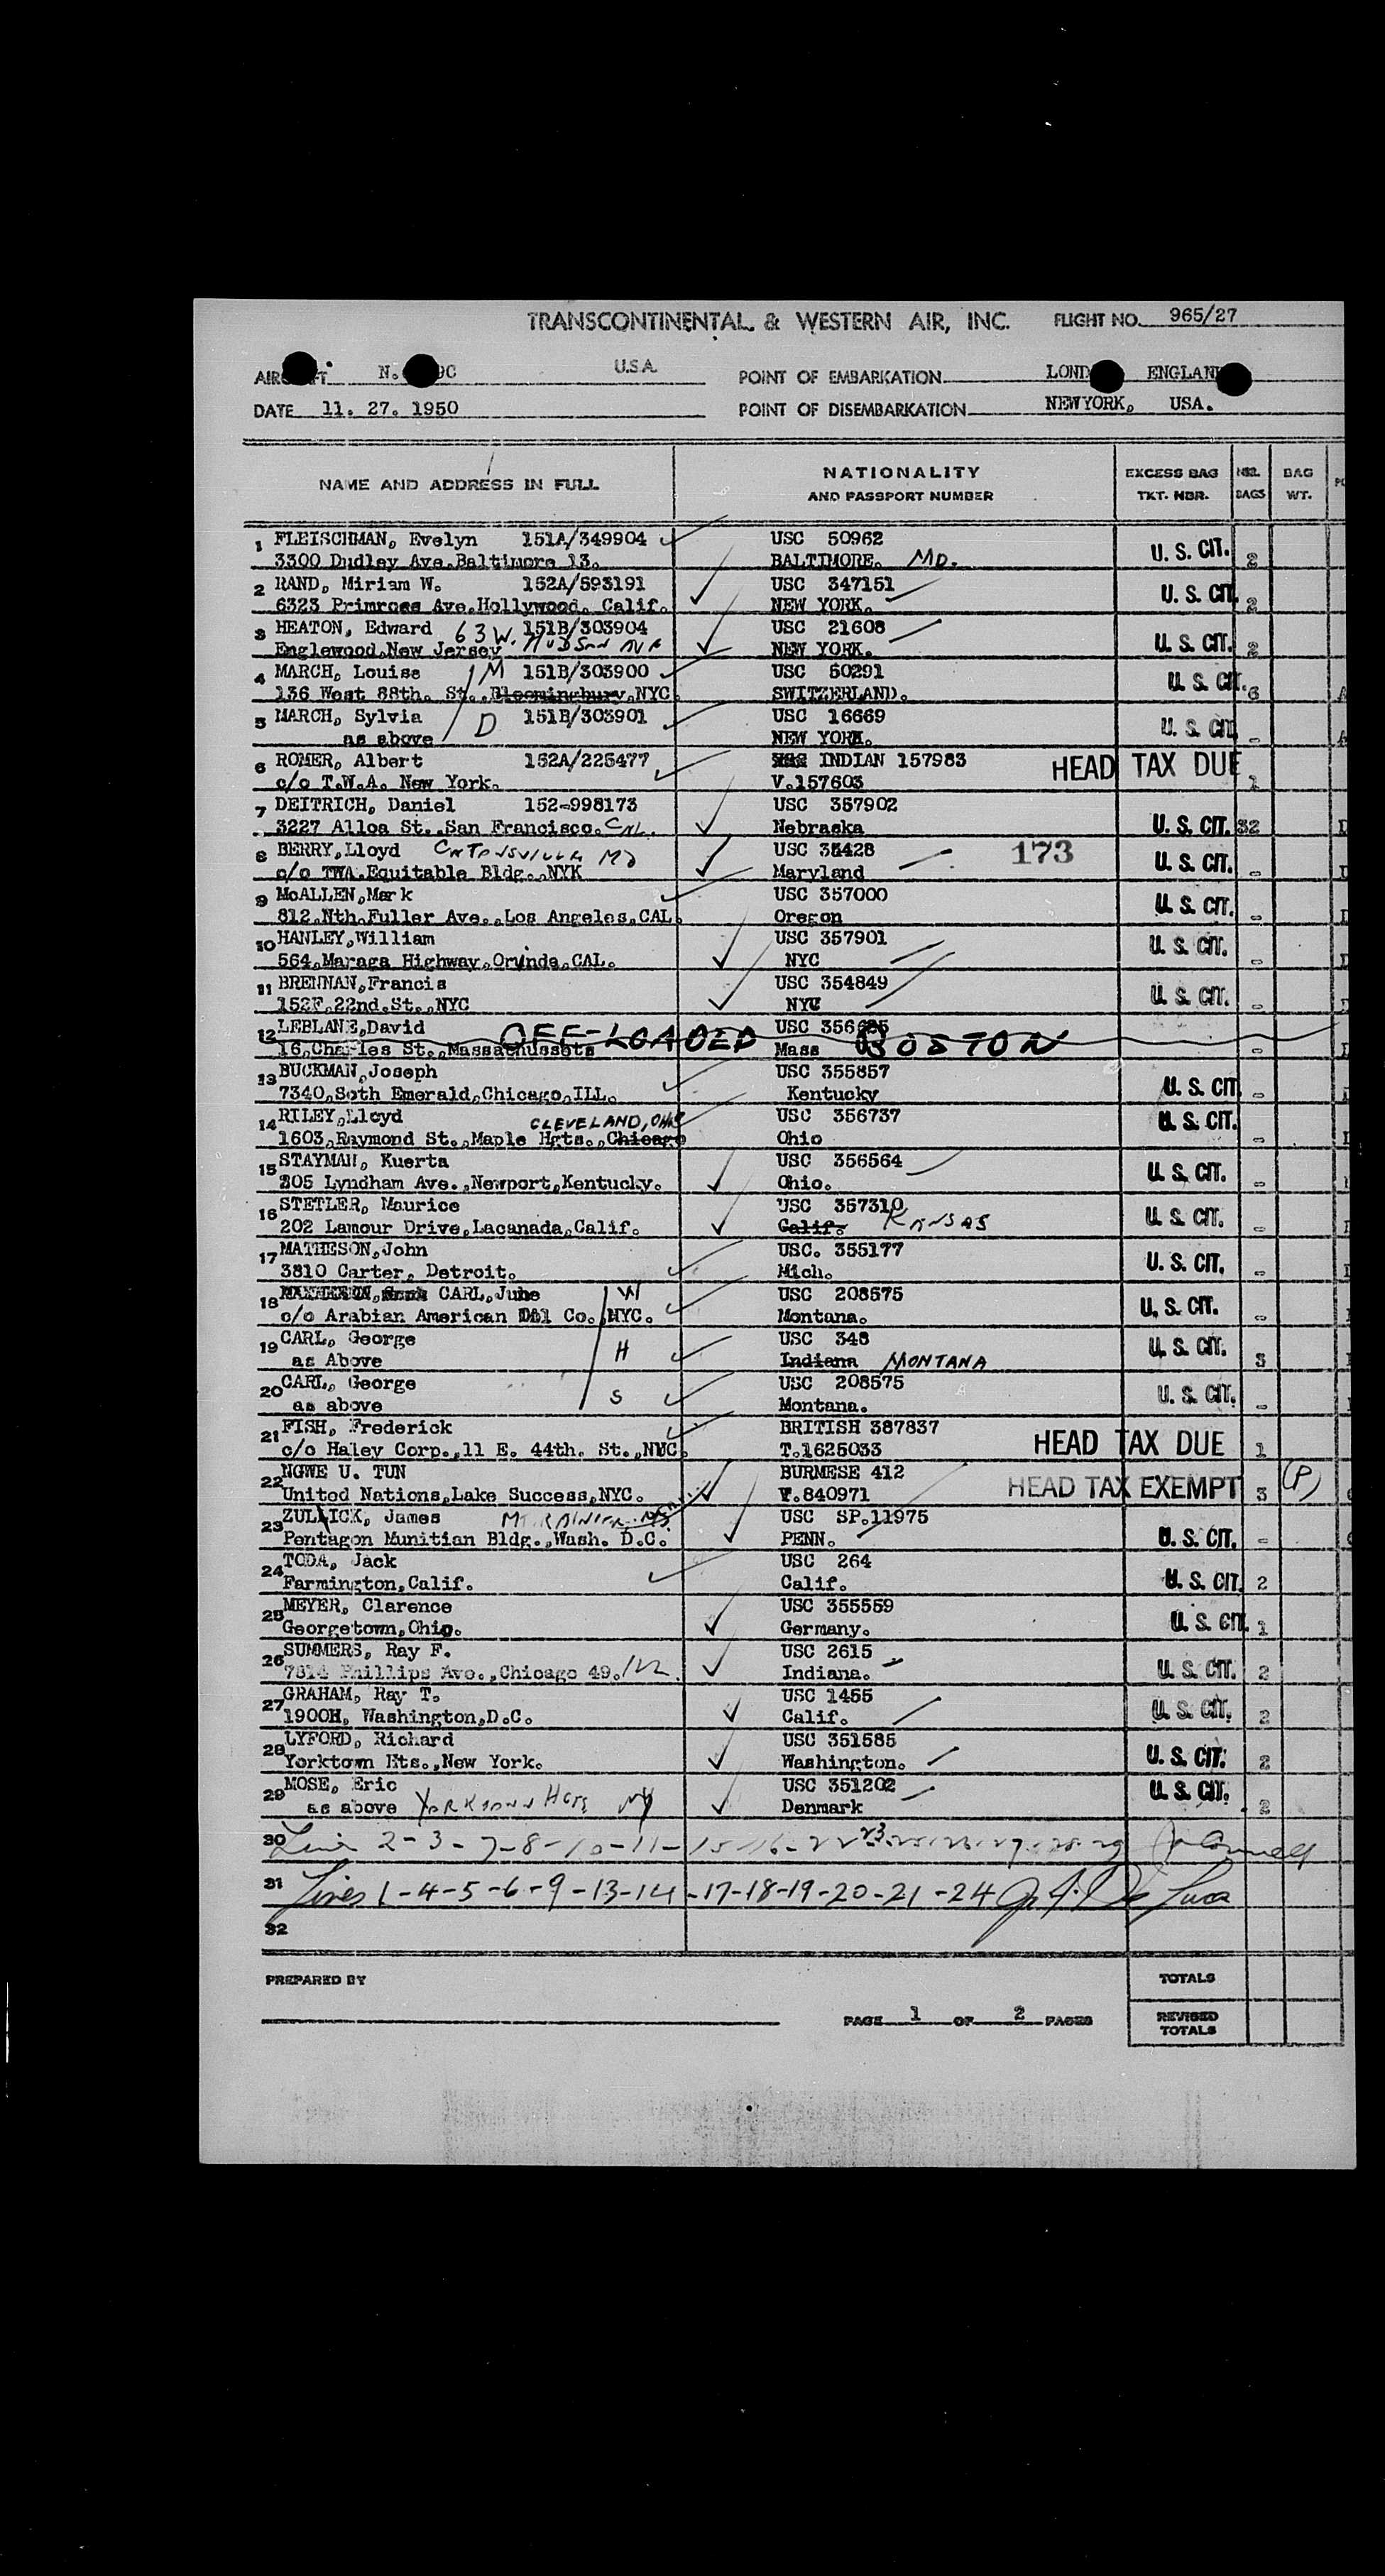 TRANSCONTINENTAL & WESTERN AIR, INC. FLIGHT NO. 965/27
N. 9C U.S.A. POINT OF EMBARKATION LOND ENGLAN
DATE 11. 27. 1950 POINT OF DISEMBARKATION NEWYORK, USA.
NAME AND ADDRESS IN FULL NATIONALITY AND PASSPORT NUMBER EXCESS BAG TKT. NBR. NBR. BAGS BAG WT.
1 FLEISCHMAN, Evelyn 151A/349904 USC 50962 U. S. CIT. 2
3300 Dudley Ave.Baltimore 13. BALTIMORE. MD.
2 RAND, Miriam W. 152A/593191 USC 347151 U. S. CIT. 2
6323 Primrose Ave.Hollywood. Calif. NEW YORK.
3 HEATON, Edward 63 W. 151B/303904 USC 21608 U. S. CIT. 2
Englewood,New Jersey HUDSON AVE NEW YORK.
4 MARCH, Louise M 151B/303900 USC 50291 U. S. CIT. 6
136 West 88th. St., Bloomingbury,NYC. SWITZERLAND.
5 MARCH, Sylvia D 151B/303901 USC 16669 U. S. CIT. -
as above NEW YORK.
6 ROMER, Albert 152A/225477 INDIAN 157983 HEAD TAX DUE 1
c/o T.W.A. New York. V.157603
7 DEITRICH, Daniel 152-998173 USC 357902
3227 Alloa St. San Francisco. CAL. Nebraska U. S. CIT. 32
8 BERRY,Lloyd CATONSVILLE MD USC 35428 173 U. S. CIT. -
c/o TWA.Equitable Bldg.,NYK Maryland
9 McALLEN,Mark USC 357000 U. S. CIT. -
812.Nth.Fuller Ave.,Los Angeles,CAL. Oregon
10 HANLEY,William USC 357901 U. S. CIT. -
564,Maraga Highway,Orinda,CAL. NYC
11 BRENNAN,Francis USC 354849 U. S. CIT. -
152F.22nd.St.,NYC NYC
12 LEBLANE,David OFF-LOADED BOSTON
16,Charles St.,Massachussets Mass -
13 BUCKMAN,Joseph USC 355857 U. S. CIT. -
7340,Soth Emerald,Chicago,ILL. Kentucky
14 RILEY,Lloyd CLEVELAND, OHIO USC 356737 U. S. CIT. -
1603,Raymond St.,Maple Hgts.,Chicago Ohio
15 STAYMAN, Kuerta USC 356564 U. S. CIT. -
305 Lyndham Ave.,Newport,Kentucky. Ohio.
16 STETLER, Maurice USC 357310 U. S. CIT. -
202 Lamour Drive,Lacanada,Calif. Calif. KANSAS
17 MATHESON,John USC. 355177 U. S. CIT. -
3810 Carter, Detroit. Mich.
18 CARL,June W USC 208575 U. S. CIT. -
c/o Arabian American Oil Co.,NYC. Montana.
19 CARL, George H USC 348 U. S. CIT. 3
as Above Indiana MONTANA
20 CARL, George S USC 208575 U. S. CIT. -
as above Montana.
21 FISH, Frederick BRITISH 387837 HEAD TAX DUE 1
c/o Haley Corp.,11 E. 44th. St.,NYC. T.1625033
22 NGWE U. TUN BURMESE 412 HEAD TAX EXEMPT 3 (P)
United Nations,Lake Success,NYC. V.840971
23 ZULLICK, James MT. RAINIER USC SP.11975
Pentagon Munitian Bldg.,Wash. D.C. PENN. U. S. CIT. -
24 TODA, Jack USC 264
Farmington,Calif. Calif. U. S. CIT. 2
25 MEYER, Clarence USC 355559
Georgetown,Ohio. Germany. U. S. CIT. 1
26 SUMMERS, Ray F. USC 2615
7814 Phillips Ave.,Chicago 49. Indiana. U. S. CIT. 2
27 GRAHAM, Ray T. USC 1455
1900H, Washington,D.C. Calif. U. S. CIT. 2
28 LYFORD, Richard USC 351585
Yorktown Hts.,New York. Washington. U. S. CIT. 2
29 MOSE, Eric USC 351202 U. S. CIT. 2
as above YORKTOWN HGTS NY Denmark
30 2-3-7-8-10-11-15-16-
31 Lines 1-4-5-6-9-13-14-17-18-19-20-21-24
32
PREPARED BY TOTALS
PAGE 1 OF 2 PAGES REVISED TOTALS